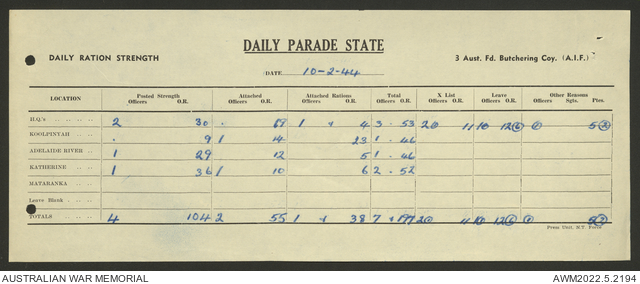 DAILY PARADE STATE
DAILY RATION STRENGTH
3 Aust. Fd. Butchering Coy. (A.I.F.)
DATE 10-2-44
LOCATION Posted Strength Officers O.R. Attached Officers O.R. Attached Rations Officers O.R. Total Officers O.R. X List Officers O.R. Leave Officers O.R. Other Reasons Officers Sgts. Ptes.
H.Q's 2 30 1 + 4 3 53
KOOLPINYAH 9 1 14 23 1 46
ADELAIDE RIVER 1 29 12 5 1 46
KATHERINE 1 36 1 10 6 2 52
MATARANKA
Leave Blank
TOTALS 4 104 2 55 1 + 38 7 + 197
Press Unit. N.T. Force
AUSTRALIAN WAR MEMORIAL
AWM2022.5.2194